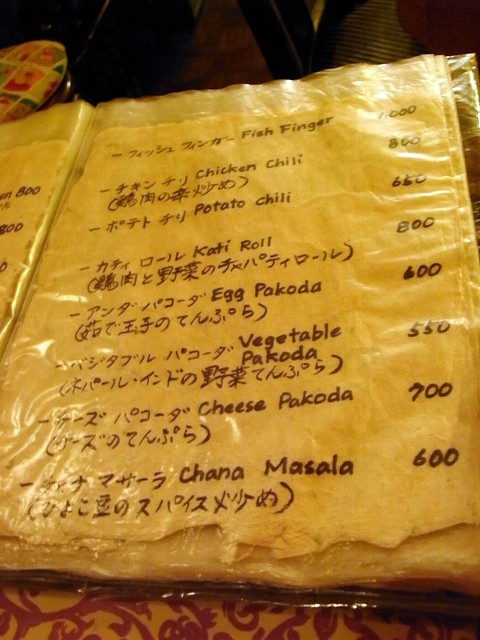 ーフィッシュ フィンガー Fish Finger 1000
ーチキン チリ Chicken Chili 800
(鶏肉の辛炒め)
ーポテト チリ Potato chili 650
ーカティ ロール Kati Roll 800
(鶏肉と野菜のチャパティロール)
ーアンダ パコーダ Egg Pakoda 600
(茹で玉子のてんぷら)
ーベジタブル パコーダ Vegetable Pakoda 550
(ネパール・インドの野菜てんぷら)
ーチーズ パコーダ Cheese Pakoda 700
(チーズのてんぷら)
ーチャナ マサーラ Chana Masala 600
(ひよこ豆のスパイス炒め)
en 800
800